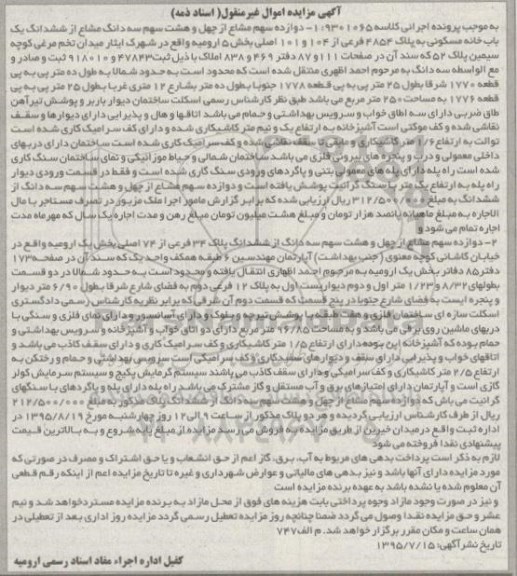 آگهی مزایده اموال غیرمنقول( اسناد ذمه)
به موجب پرونده اجرائی کلاسه ۹۳۰۱۰۶۵-۱: دوازده سهم مشاع از چهل و هشت سهم سه دانگ مشاع از ششدانگ یک
باب خانه مسکونی به پلاک ۴۸۵۴ فرعی از ۱۰۴ و ۱۰۱ اصلی بخش ۵ ارومیه واقع در شهرک ایثار میدان تخم مرغی کوچه
سیمین پلاک ۵۲ که سند آن در صفحات ۱۱۱ و ۸۷ دفتر ۴۶۹ و ۸۳۸ املاک با ذیل ثبت ۴۷۸۴۳ و ۹۱۸۰۱۰ ثبت و صادر و
مع الواسطه سه دانگ به مرحوم احمد اظهری منتقل شده است که محدود است به حدود شمالا به طول ده متر پی به پی
قطعه ۱۷۷۰ شرقا بطول ۲۵ متر پی به پی قطعه ۱۷۷۸ جنوبا بطول ده متر بشارع ۱۲ متری غربا بطول ۲۵ متر پی به پی
قطعه ۱۷۷۶ به مساحت ۲۵۰ متر مربع می باشد طبق نظر کارشناس رسمی اسکلت ساختمان دیوار باربر و پوشش تیرآهن
طاق ضربی دارای سه اطاق خواب و سرویس بهداشتی و حمام می باشد اتاقها و هال و پذیرایی دارای دیوارها و سقف
نقاشی شده و کف موکتی است آشپزخانه به ارتفاع یک و نیم متر کاشیکاری شده و دارای کف سرامیک کاری شده است
توالت به ارتفاع ۱/۶ متر کاشیکاری و مابقی تا سقف نقاشی شده و کف سرامیک کاری شده است ساختمان دارای در بهای
داخلی معمولی و درب و پنجره های بیرونی فلزی می باشد ساختمان شمالی و حیاط موزائیکی و نمای ساختمان سنگ کاری
شده است راه پله دارای پله های معمولی بتنی و پاگردهای ورودی سنگ کاری شده است و فقط در قسمت ورودی دیوار
راه پله به ارتفاع یک متر با سنگ گرانیت پوشش یافته است و دوازده سهم مشاع از چهل و هشت سهم سه دانگ از
ششدانگ به مبلغ ۳۱۲/۵۰۰/۰۰۰ ریال ارزیابی شده که برابر گزارش مامور اجرا ملک مزبور در تصرف مستاجر با مال
الاجاره به مبلغ ماهیانه پانصد هزار تومان و مبلغ هشت میلیون تومان مبلغ رهن و مدت اجاره یک سال که مهرماه مدت
اجاره تمام می شود و
۲- دوازده سهم مشاع از چهل و هشت سهم سه دانگ از ششدانگ پلاک ۳۴ فرعی از ۷۴ اصلی بخش یک ارومیه واقع در
خیابان کاشانی کوچه معنوی (جنب بهداشت) آپارتمان مهندسین ۶ طبقه همکف واحد یک که سند آن در صفحه ۱۷۳
دفتر ۸۵ دفاتر بخش یک ارومیه به مرحوم احمد اظهاری انتقال یافته و محدود است به حدود شمالا در دو قسمت
بطولهای ۸/۳۲ و ۱/۲۳ متر اول و دوم دیواریست اول به پلاک ۱۲ فرعی دوم به فضای شارع شرقا بطول ۶/۹۰ متر دیوار
و پنجره ایست به فضای شارع جنوبا در پنج قسمت که قسمت دوم آن شرقی که برابر نظریه کارشناس رسمی دادگستری
اسکلت سازه ای ساختمان فلزی و هفت طبقه با پوشش تیرچه و بلوک و دارای آسانسور و دارای نمای فلزی و سنگی با
دربهای ماشین روی برقی می باشد و به مساحت ۹۶/۸۵ متر مربع دارای دو اتاق خواب و آشپزخانه و سرویس بهداشتی و
حمام بوده که آشپزخانه اپن بوده دارای ارتفاع ۱/۵ متر کاشیکاری و کف سرامیک کاری و دارای سقف کاذب می باشد و
اتاقهای خواب و پذیرایی دارای سقف و دیوارهای سفیدکاری و کف سرامیکی است سرویس بهداشتی و حمام و رختکن به
ارتفاع ۲/۵ متر کاشیکاری و کف سرامیکی و دارای سقف کاذب می باشند سیستم گرمایش پکیج و سیستم سرمایش کولر
گازی است و آپارتمان دارای امتیازهای برق و آب مستقل و گاز مشترک می باشد راه پله دارای پله و پاگردهای با سنگهای
گرانیت می باش که دوازده سهم مشاع از چهل و هشت سهم سه دانگ از ششدانگ پلاک مذکور به مبلغ ۲۱۲/۵۰۰/۰۰۰
ریال از طرف کارشناس ارزیابی گردیده و هر دو پلاک مذکور از ساعت ۹ الی ۱۲ روز چهارشنبه مورخ ۱۳۹۵/۸/۱۹ در
اداره ثبت واقع در میدان خیرین از طریق مزایده به فروش می رسد مزایده از مبلغ پایه شروع و به بالاترین قیمت
پیشنهادی نقدا فروخته می شود
لازم به ذکر است پرداخت بدهی های مربوط به آب، برق، گاز اعم از حق انشعاب و یا حق اشتراک و مصرف در صورتی که
مورد مزایده دارای آنها باشد و نیز بدهی های مالیاتی و عوارض شهرداری و غیره تا تاریخ مزایده اعم از اینکه رقم قطعی
آن معلوم شده یا نشده باشد به عهده برنده مزایده است
و نیز در صورت وجود مازاد وجوه پرداختی بابت هزینه های فوق از محل مازاد به برنده مزایده مسترد خواهد شد و نیم
عشر و حق مزایده نقدا وصول می گردد ضمنا چنانچه روز مزایده تعطیل رسمی گردد مزایده روز اداری بعد از تعطیلی در
همان ساعت و مکان مقرر برگزار خواهد شد. م الف ۷۴۷
تاریخ نشر آگهی: ۱۳۹۵/۷/۱۵
کفیل اداره اجراء مفاد اسناد رسمی ارومیه